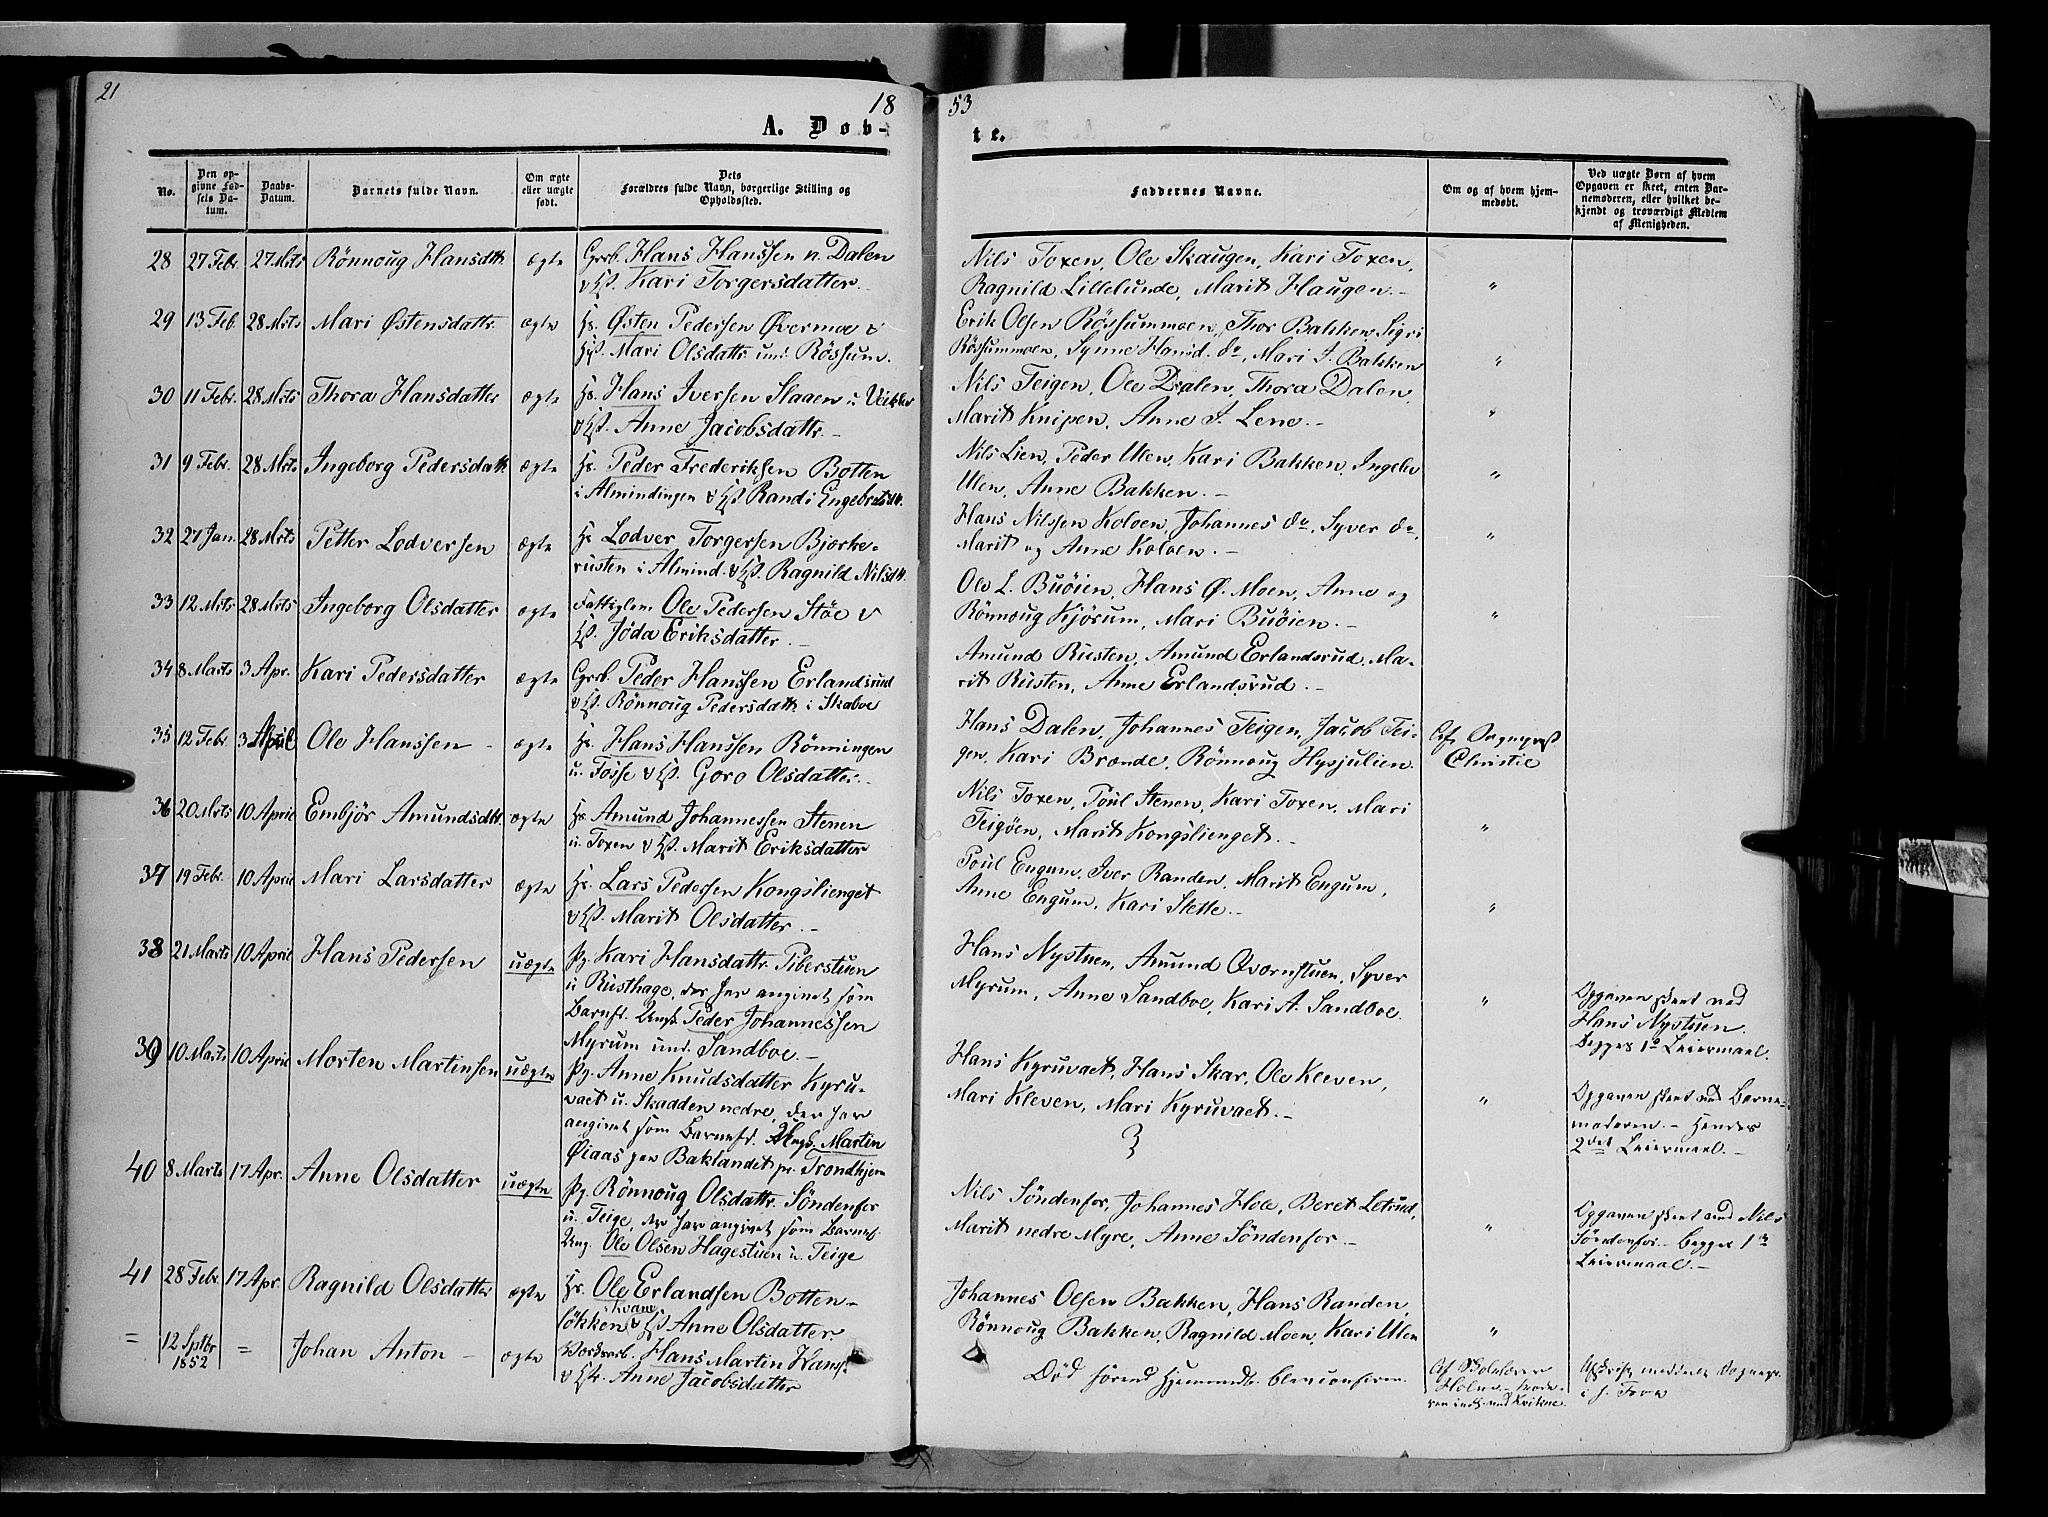 21
18
53
A. Døb-
te.
No.
Den op-
givne Fød-
sels Da-
tum.
Daabs-
Datum.
Barnets fulde Navn.
Om ægte
eller uægte
født.
Dets
Forældres fulde Navn, borgerlige Stilling og
Opholdssted.
Faddernes Navne.
Om og af hvem hjem-
medøbt.
Ved uægte Børn af hvem
Opgaven er skeet, enten Bar-
nemoderen, eller hvilket be-
kjendt og troværdigt Medlem
af Menigheden.
28 27 Febr. 27 Mrts Rönnoug Hansdttr. ægte Grb. Hans Hanssen n. Dalen
v Hst. Kari Torgersdatter.
Nils Toxen, Ole Skaugen, Kari Toxen,
Ragnild Lillelunde, Marit Haugen. — "
29 13 Feb. 28 Mrts Mari Østensdattr. ægte Hs. Østen Pedersen Øvermoe v
Hst. Mari Olsdattr. und. Rössum.
Erik Olsen Rössummoen, Thor Bakken, Sigri
Rössummoen, Synne Hansd. do, Mari J. Bakken "
30 11 Febr. 28 Mrts Thora Hansdatter ægte Hs. Hans Iversen Slaaen u Veikle
v Hst. Anne Jacobsdattr. —
Nils Teigen, Ole Dalen, Thora Dalen,
Marit Knipen, Anne J. Lene. — "
31 9 Febr. 28 Mrts Ingeborg Pedersdattr. ægte Hs. Peder Frederiksen Botten
i Almindingen v Hst. Randi Engebretsdtr.
Nils Lien, Peder Ulen, Kari Bakken, Ingeler
Ulen, Anne Bakken. — "
32 27 Jan. 28 Mrts Petter Lodversen ægte Hs Lodver Torgersen Bjørke-
rusten i Almind. v Hst. Ragnild Nilsdtr.
Hans Nilssen Koloen, Johannes do, Syver do,
Marit og Anne Koloen. — "
33 12 Mrts 28 Mrts Ingeborg Olsdatter ægte Fattiglem Ole Pedersen Støe v
Hst. Jøda Eriksdatter. —
Ole L. Buöien, Hans Ø. Moen, Anne og
Rönnoug Kjørum, Mari Buöien. — "
34 8 Marts 3 Apr. Kari Pedersdatter ægte Grb. Peder Hanssen Erlandsrud
v Hst. Rönnoug Pedersdattr. i Skaboe
Amund Rusten, Amund Erlandsrud, Ma-
rit Rusten, Anne Erlandsrud. —
35 12 Febr. 3 April Ole Hanssen — ægte Hs. Hans Hanssen Rönningen
u. Fosse v Hst. Goro Olsdatter. —
Hans Dalen, Johannes Teigen, Jacob Tei-
gen, Kari Brænde, Rönnoug Hysjulien.
Christie
36 20 Mrts 10 April Embjör Amundsdttr. ægte Hs. Amund Johannessen Stenen
u. Toxen v Hst. Marit Eriksdatter
Nils Toxen, Poul Stenen, Kari Toxen, Mari
Teigöen, Marit Kongslienget. — "
37 19 Febr. 10 April Mari Larsdatter ægte Hs. Lars Pedersen Kongslienget
v Hst. Marit Olsdatter. —
Poul Engum, Iver Randen, Marit Engum,
Anne Engum, Kari Slette. — "
38 21 Marts 10 April Hans Pedersen uægte Pg. Kari Hansdattr. Piberstuen
u Rusthage, der har angivet som
Barnf. Ungk. Peder Johannessen
Myrum und. Sandboe. —
Hans Nystuen, Amund Qvernstuen, Syver
Myrum, Anne Sandboe, Kari A. Sandboe. "
Opgaven skeet ved
Hans Nystuen.
Begges 1e Leiermaal.
39 10 Marts 10 April Morten Martinsen uægte Pg. Anne Knudsdatter Kyru-
vaet u. Skadden nedre, der har
angivet som Barnefd. Ungk. Martin
Øiaas paa Baklandet pr. Trondhjem
Hans Kyruvaet, Hans Skar, Ole Kleven,
Mari Kleven, Mari Kyruvaet. — "
Opgaven skeet ved Barne-
moderen. — Hendes
2det Leiermaal. —
40 8 Marts 17 Apr. Anne Olsdatter uægte Pg. Rönnoug Olsdattr. Söndenfor
u. Teige, der har angivet som Barnef.
Ung. Ole Olsen Hagestuen u. Teige
Nils Söndenfor, Johannes Hole, Beret Letrud,
Marit nedre Myre, Anne Söndenfor — "
Opgaven skeet ved Nils
Söndenfor — Begges 1te
Leiermaal. —
41 28 Febr. 17 Apr. Ragnild Olsdatter ægte Hs. Ole Erlandsen Botten-
løkken i Kvam v Hst Anne Olsdatter.
Johannes Olsen Bakken, Hans Randen,
Rönnoug Bakken, Ragnild Moen, Kari Ulen "
= 12 Sptbr 1852 = Johan Anton — ægte Hans Martin Hans-
v Hst. Anne Jacobsdatter
Död förend Hjemmedb.
Af Skolelærer
Holm
i h. Fron